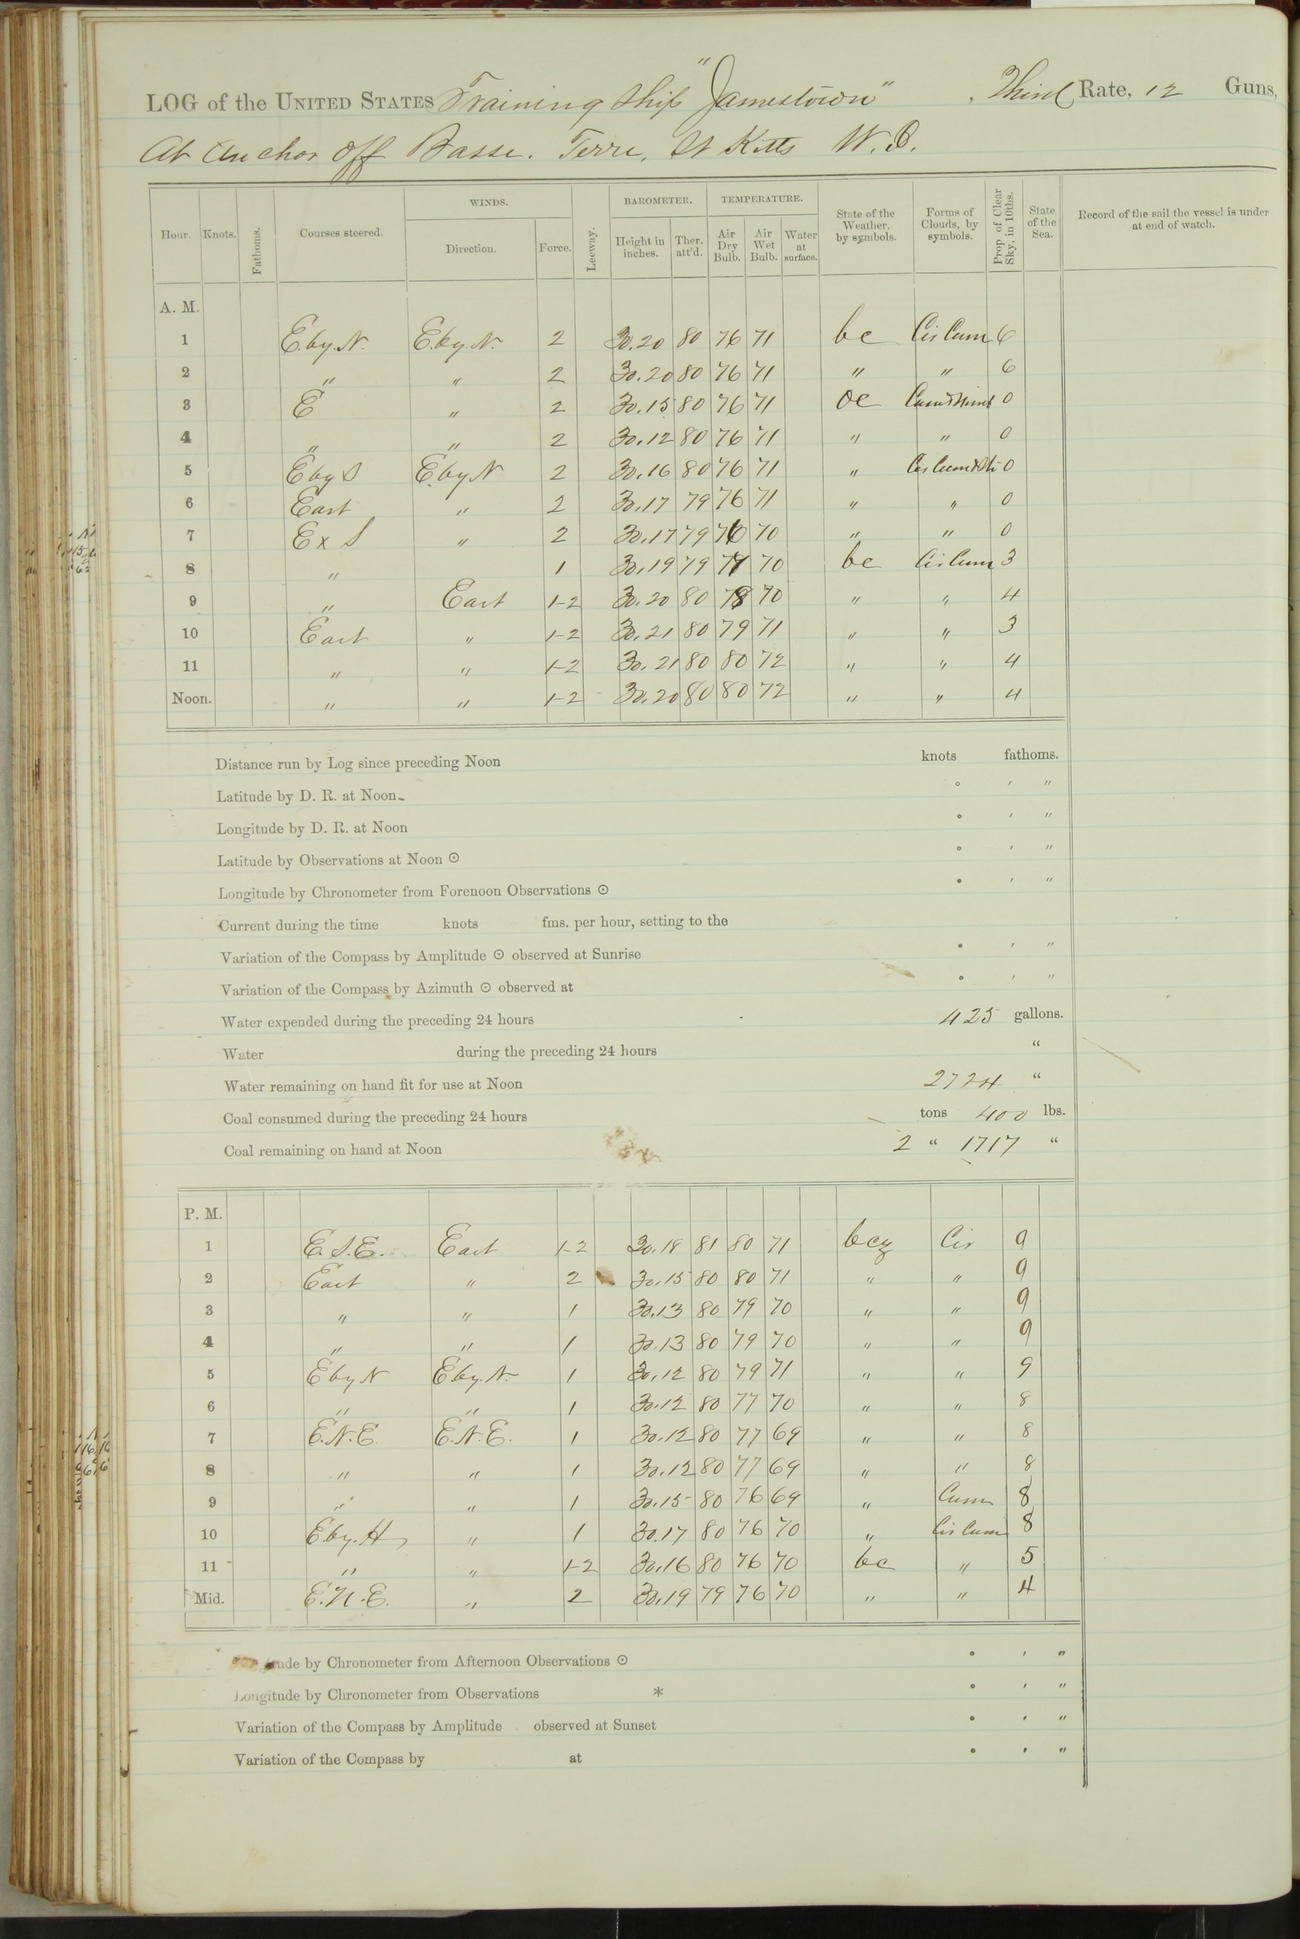 LOG of the UNITED STATES Training Ship "Jamestown", Third Rate, 12 Guns,
At Anchor off Basse. Terre, St Kitts W. I.
WINDS. BAROMETER. TEMPERATURE.
Hour. Knots. Fathoms. Courses steered. Direction. Force. Leeway. Height in inches. Ther. att'd. Air Dry Bulb. Air Wet Bulb. Water at surface. State of the Weather, by symbols. Forms of Clouds, by symbols. Prop. of Clear Sky, in 10ths. State of the Sea. Record of the sail the vessel is under at end of watch.
A. M.
1 E.by.N. E.by.N. 2 30.20 80 76 71 bc Cir Cum 6
2 " " 2 30.20 80 76 71 " " 6
3 E " 2 30.15 80 76 71 oc Cum & Nimb 0
4 " " 2 30.12 80 76 71 " " 0
5 E by S E by N 2 30.16 80 76 71 " Cir Cum & Str 0
6 East " 2 30.17 79 76 71 " " 0
7 E x S " 2 30.17 79 76 70 " " 0
8 " 1 30.19 79 77 70 bc Cir Cum 3
9 " East 1-2 30.20 80 78 70 " " 4
10 East " 1-2 30.21 80 79 71 " " 3
11 " " 1-2 30.21 80 80 72 " " 4
Noon. " " 1-2 30.20 80 80 72 " " 4
Distance run by Log since preceding Noon knots fathoms.
Latitude by D. R. at Noon ° ' "
Longitude by D. R. at Noon ° ' "
Latitude by Observations at Noon ⊙ ° ' "
Longitude by Chronometer from Forenoon Observations ⊙ ° ' "
Current during the time knots fms. per hour, setting to the
Variation of the Compass by Amplitude ⊙ observed at Sunrise ° ' "
Variation of the Compass by Azimuth ⊙ observed at ° ' "
Water expended during the preceding 24 hours 425 gallons.
Water during the preceding 24 hours "
Water remaining on hand fit for use at Noon 2724 "
Coal consumed during the preceding 24 hours tons 400 lbs.
Coal remaining on hand at Noon 2 " 1717 "
P. M.
1 E.S.E. East 1-2 30.18 81 80 71 bcq Cir 9
2 East " 2 30.15 80 80 71 " " 9
3 " " 1 30.13 80 79 70 " " 9
4 " " 1 30.13 80 79 70 " " 9
5 E by N E.by.N. 1 30.12 80 79 71 " " 9
6 " " 1 30.12 80 77 70 " " 8
7 E.N.E. E.N.E. 1 30.12 80 77 69 " " 8
8 " " 1 30.12 80 77 69 " " 8
9 " " 1 30.15 80 76 69 " Cum 8
10 E.by.N " 1 30.17 80 76 70 " Cir Cum 8
11 " " 1-2 30.16 80 76 70 bc " 5
Mid. E.N.E. " 2 30.19 79 76 70 " " 4
by Chronometer from Afternoon Observations ⊙ ° ' "
Longitude by Chronometer from Observations * ° ' "
Variation of the Compass by Amplitude observed at Sunset ° ' "
Variation of the Compass by at ° ' "